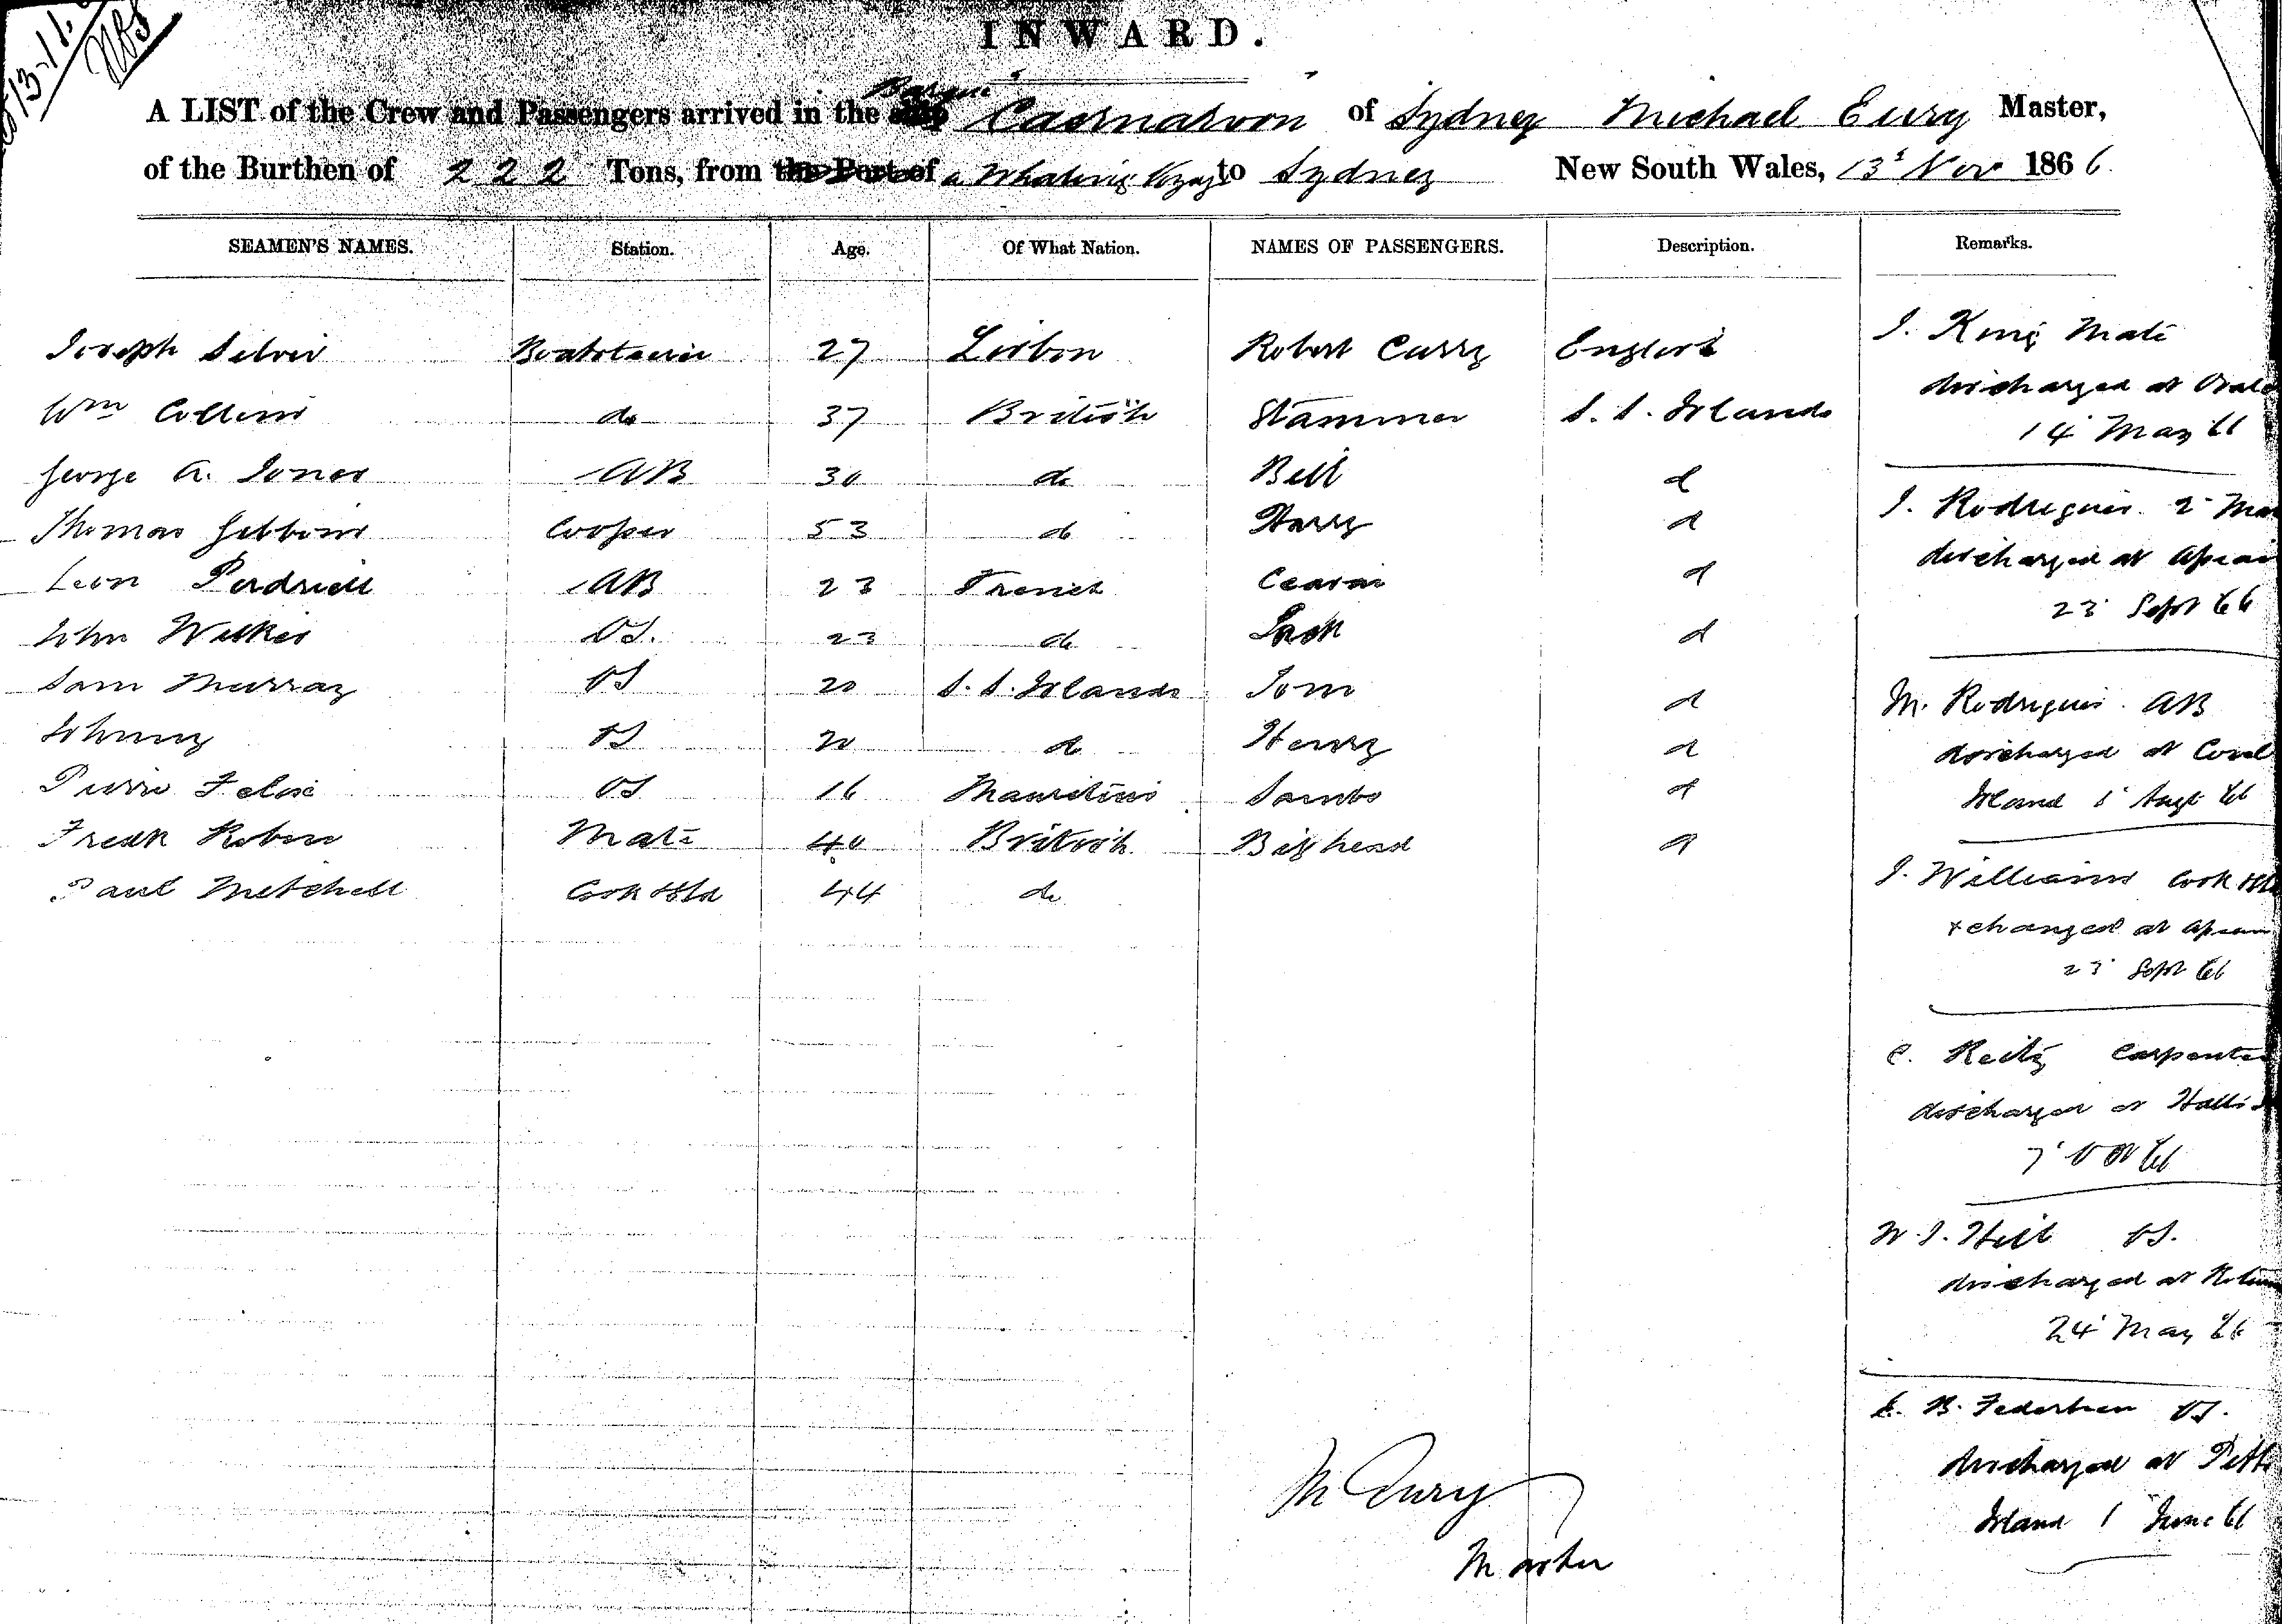 13-11
INWARD.
A LIST of the Crew and Passengers arrived in the Barque Caernarvon of Sydney Michael Eury Master,
of the Burthen of 222 Tons, from the Port of a Whaling Voyage to Sydney New South Wales, 13' Nov 1866.
SEAMEN'S NAMES. Station. Age. Of What Nation. NAMES OF PASSENGERS. Description. Remarks.
Joseph Silver Boatsteerer 27 Lisbon Robert Curry English
Wm Collins do 37 British Stammer S. S. Islands
George A. Jones AB 30 do Bell d
Thomas Gibbons Cooper 53 do Harry d
Leon AB 23 French d
John Wilkes OS. 23 do Jack d
Sam Murray OS 20 S. S. Islands Tom d
Johnny OS 20 do Henry d
Pierre Felix OS 16 Mauritius Sambo d
Fredk Robins Mate 40 British Bighead d
Paul Mitchell Cook & Std 44 do
J. King Mate
discharged at
14' May 66
J. Rodrigues 2'
discharged at
23' Sept 66
M. Rodrigues AB
discharged at
Island Augt 66
J. Williams Cook
changed at
23' Sept 66
C. Reitz Carpenter
discharged at
7' Oct 66
W. J. Hill OS.
discharged at
24' May 66
B. Federsen OS.
discharged at
Island 1 June 66
M Eury
Master